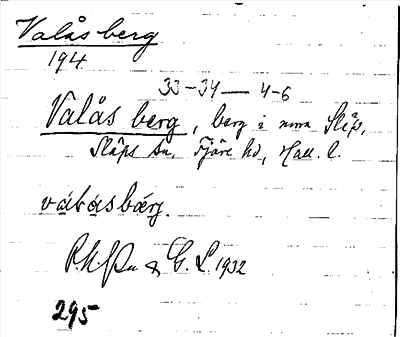 Valås berg
194
33-34 — 4-6
Valås berg, berg i norra Släp,
Släps sn, Fjäre hd, Hall. l.
G. L. 1932
295